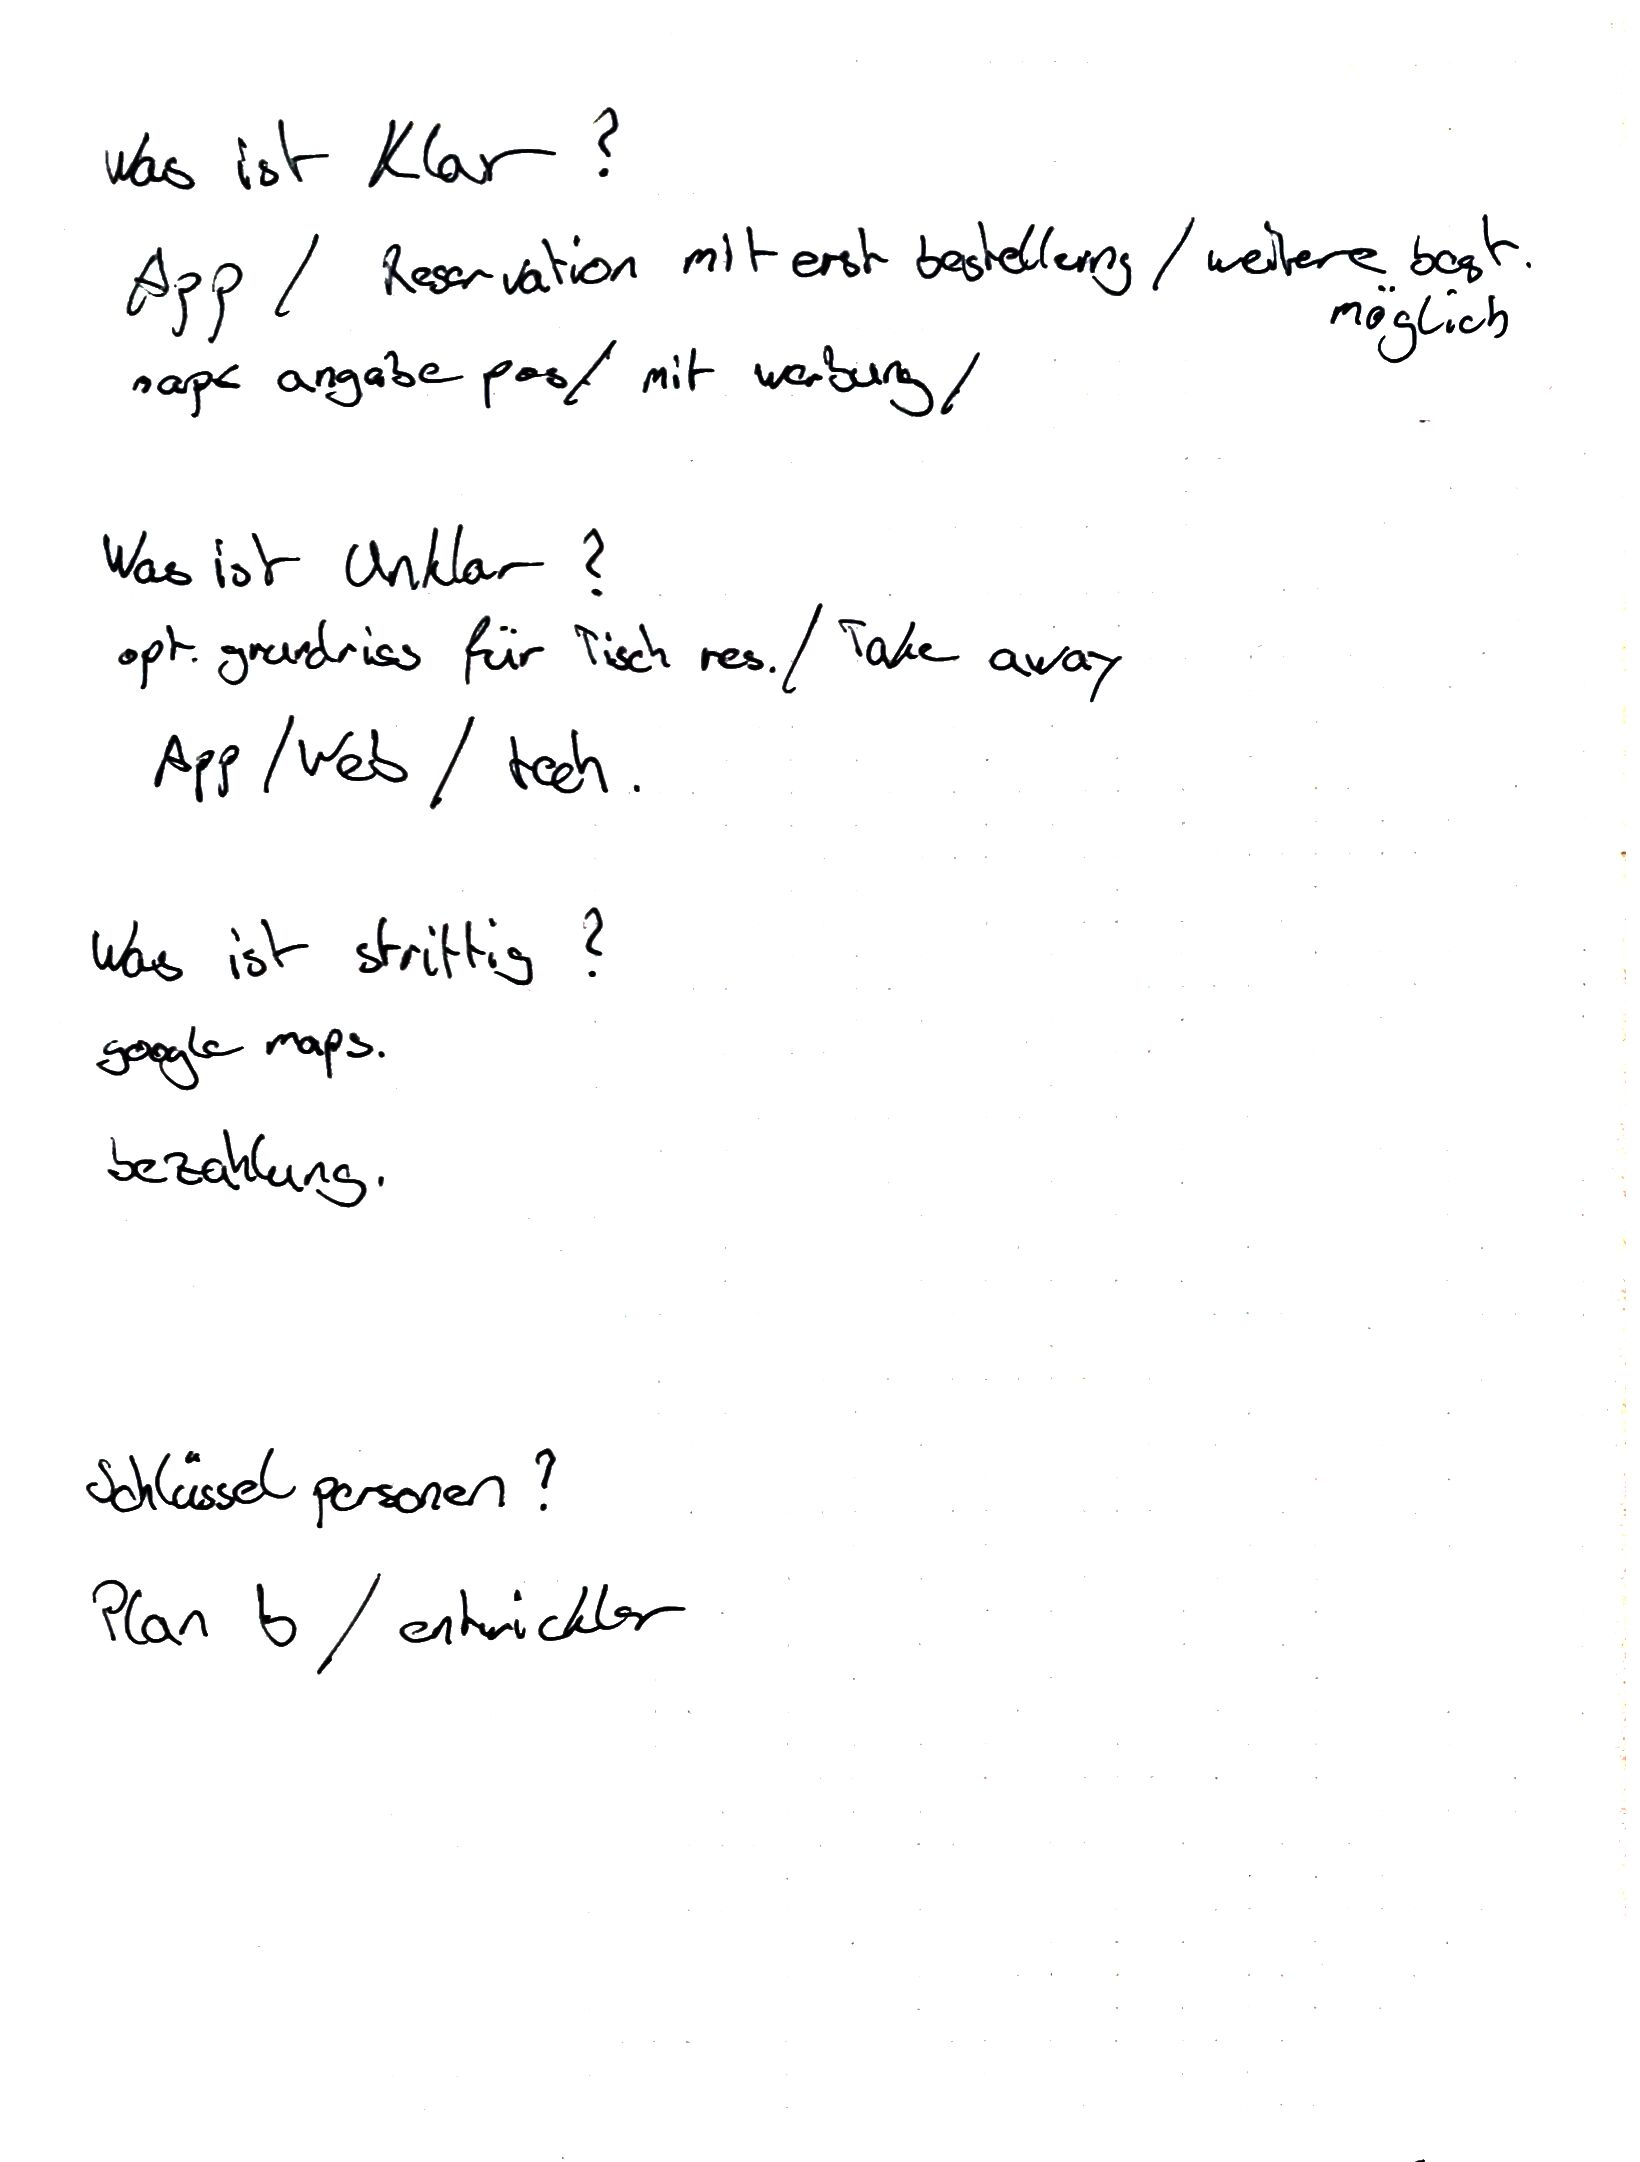 Was ist Klar ?
App / Reservation mit erst bestellung / weitere best.
möglich
angabe pos / mit werbung /
Was ist Unklar ?
opt. grundriss für Tisch res. / Take away
App / Web / tech.
Was ist strittig ?
google maps.
bezahlung.
Schlüssel personen ?
Plan b / entwickler